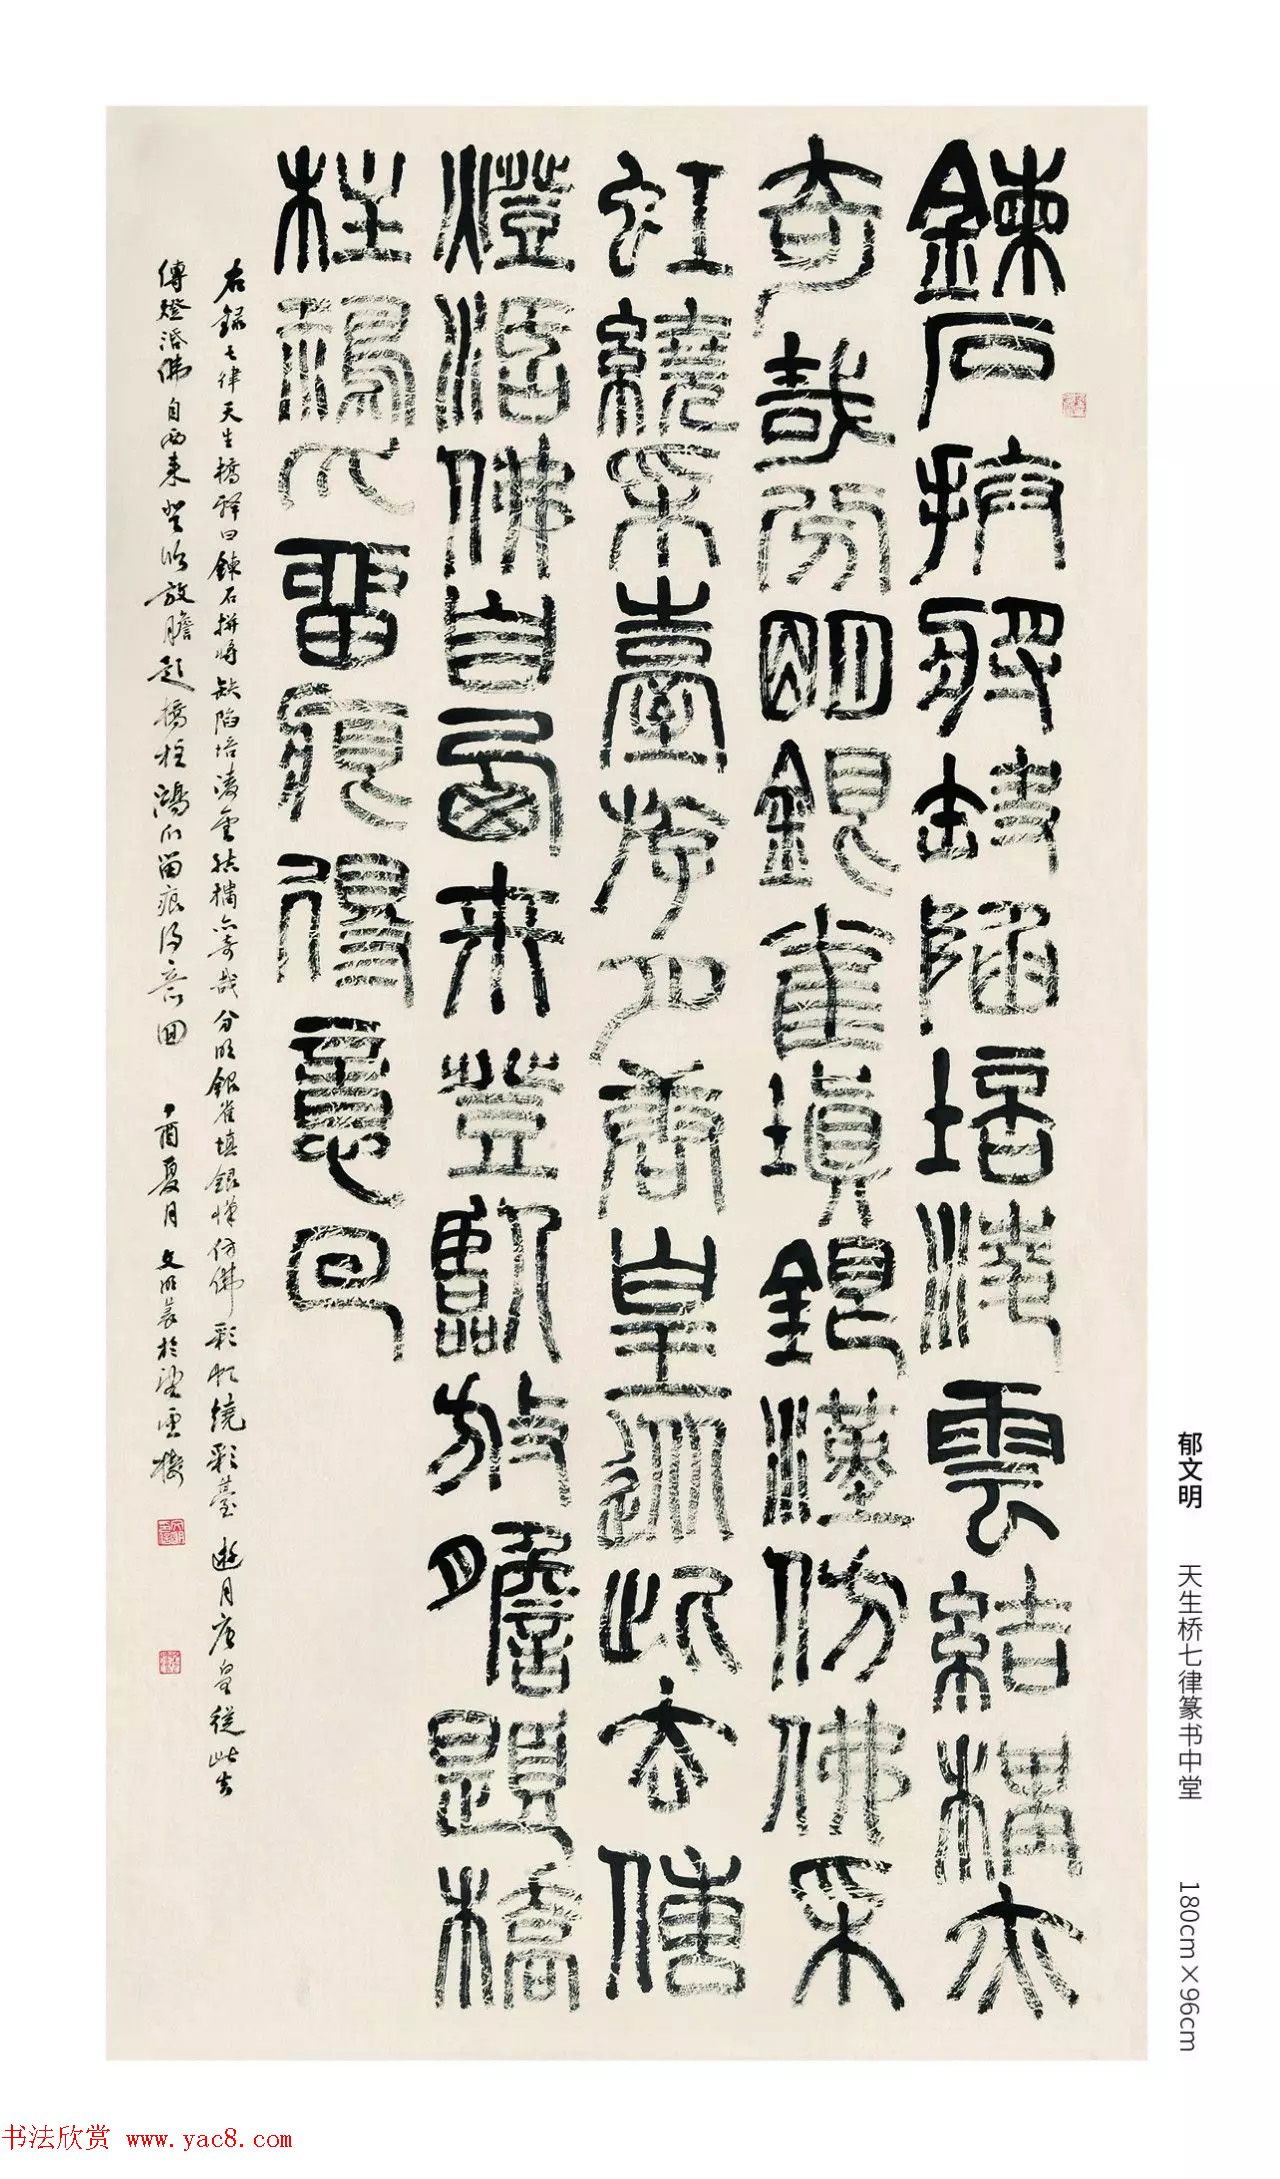 鍊石拼將缺陷培凌雲結構亦
奇哉分明銀雀填銀漢仿佛采
虹繞采臺游月唐皇從此去傳
燈活佛自西來登臨放膽題橋
柱鴻爪留痕得意回
右錄七律天生橋釋曰鍊石拼將缺陷培凌雲結構亦奇哉分明銀雀填銀漢仿佛彩虹繞彩臺遊月唐皇從此去
傳燈活佛自西來登臨放膽題橋柱鴻爪留痕得意回 丁酉夏月文明篆於望雲樓
郁文明 天生桥七律篆书中堂 180cm×96cm
书法欣赏 www.yac8.com